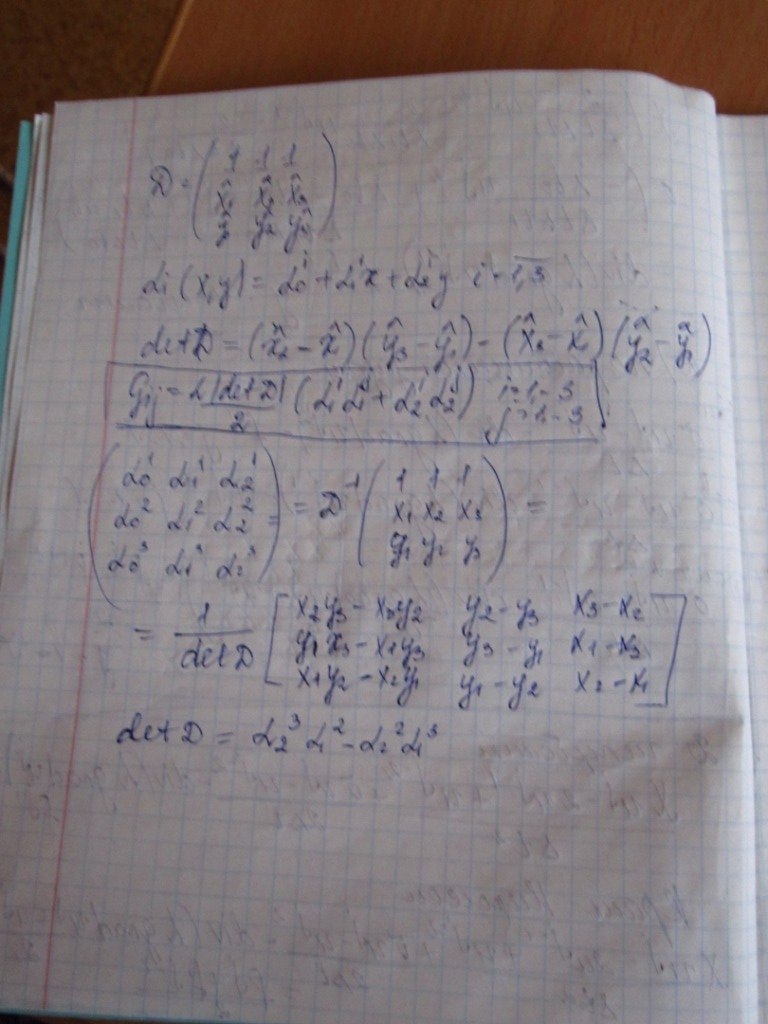 D = ( 1 1 1
x̂1 x̂2 x̂3
ŷ1 ŷ2 ŷ3 )
αi (x,y) = α0^i + α1^i x + α2^i y i = 1,3
det D = (x̂2 − x̂1)(ŷ3 − ŷ1) − (x̂3 − x̂1)(ŷ2 − ŷ1)
Gij = λ |det D| / 2 (α1^i α1^j + α2^i α2^j) i = 1 - 3
j = 1 - 3
( α0^1 α1^1 α2^1
α0^2 α1^2 α2^2
α0^3 α1^3 α2^3 ) = D^-1 ( 1 1 1
x1 x2 x3
y1 y2 y3 ) =
= 1 / det D [ x2y3 − x3y2 y2 − y3 x3 − x2
y1x3 − x1y3 y3 − y1 x1 − x3
x1y2 − x2y1 y1 − y2 x2 − x1 ]
det D = α2^3 α1^2 − α2^2 α1^3